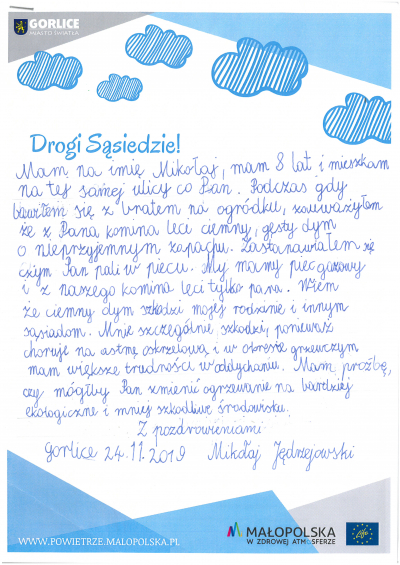 GORLICE
MIASTO ŚWIATŁA
Drogi Sąsiedzie!
Mam na imię Mikołaj, mam 8 lat i mieszkam
na tej samej ulicy co Pan. Podczas gdy
bawiłem się z bratem na ogródku, zauważyłem
że z Pana komina leci ciemny, gęsty dym
o nieprzyjemnym zapachu. Zastanawiałem się
czym Pan pali w piecu. My mamy piec gazowy
i z naszego komina leci tylko para. Wiem
że ciemny dym szkodzi mojej rodzinie i innym
sąsiadom. Mnie szczególnie szkodzi, ponieważ
choruję na astmę oskrzelową i w okresie grzewczym
mam większe trudności w oddychaniu. Mam prośbę,
czy mógłby Pan zmienić ogrzewanie na bardziej
ekologiczne i mniej szkodliwe środowisku.
Z pozdrowieniami
Gorlice 24.11.2019 Mikołaj Jędrzejowski
WWW.POWIETRZE.MALOPOLSKA.PL
MAŁOPOLSKA
W ZDROWEJ ATMOSFERZE
Life